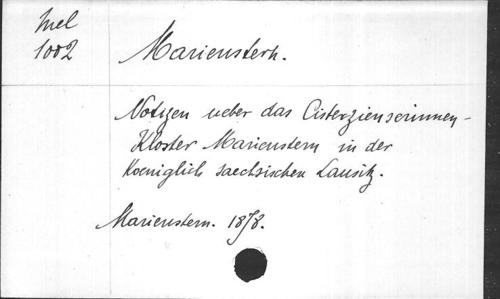 Mel
1002
Marienstern.
Notizen ueber das Cisterzienserinnen-
Kloster Marienstern in der
Koeniglich saechsischen Lausitz.
Marienstern. 1878.